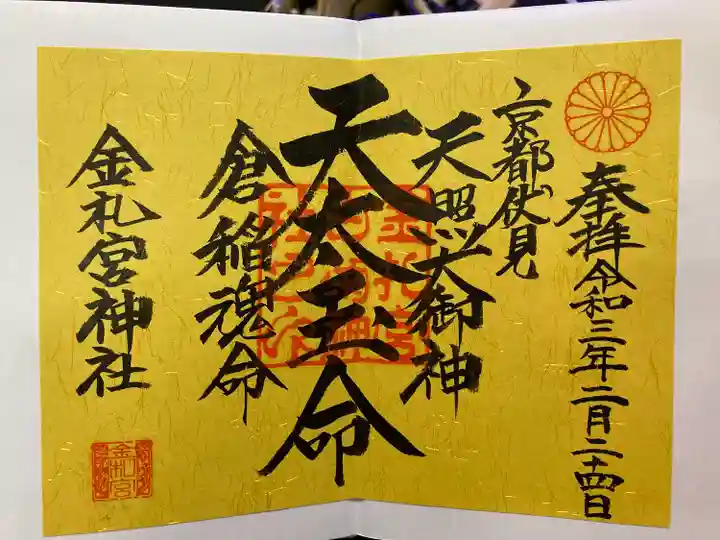 奉拝令和三年二月二十四日
京都伏見
天照大御神
天太玉命
倉稲魂命
金札宮神社
金札宮